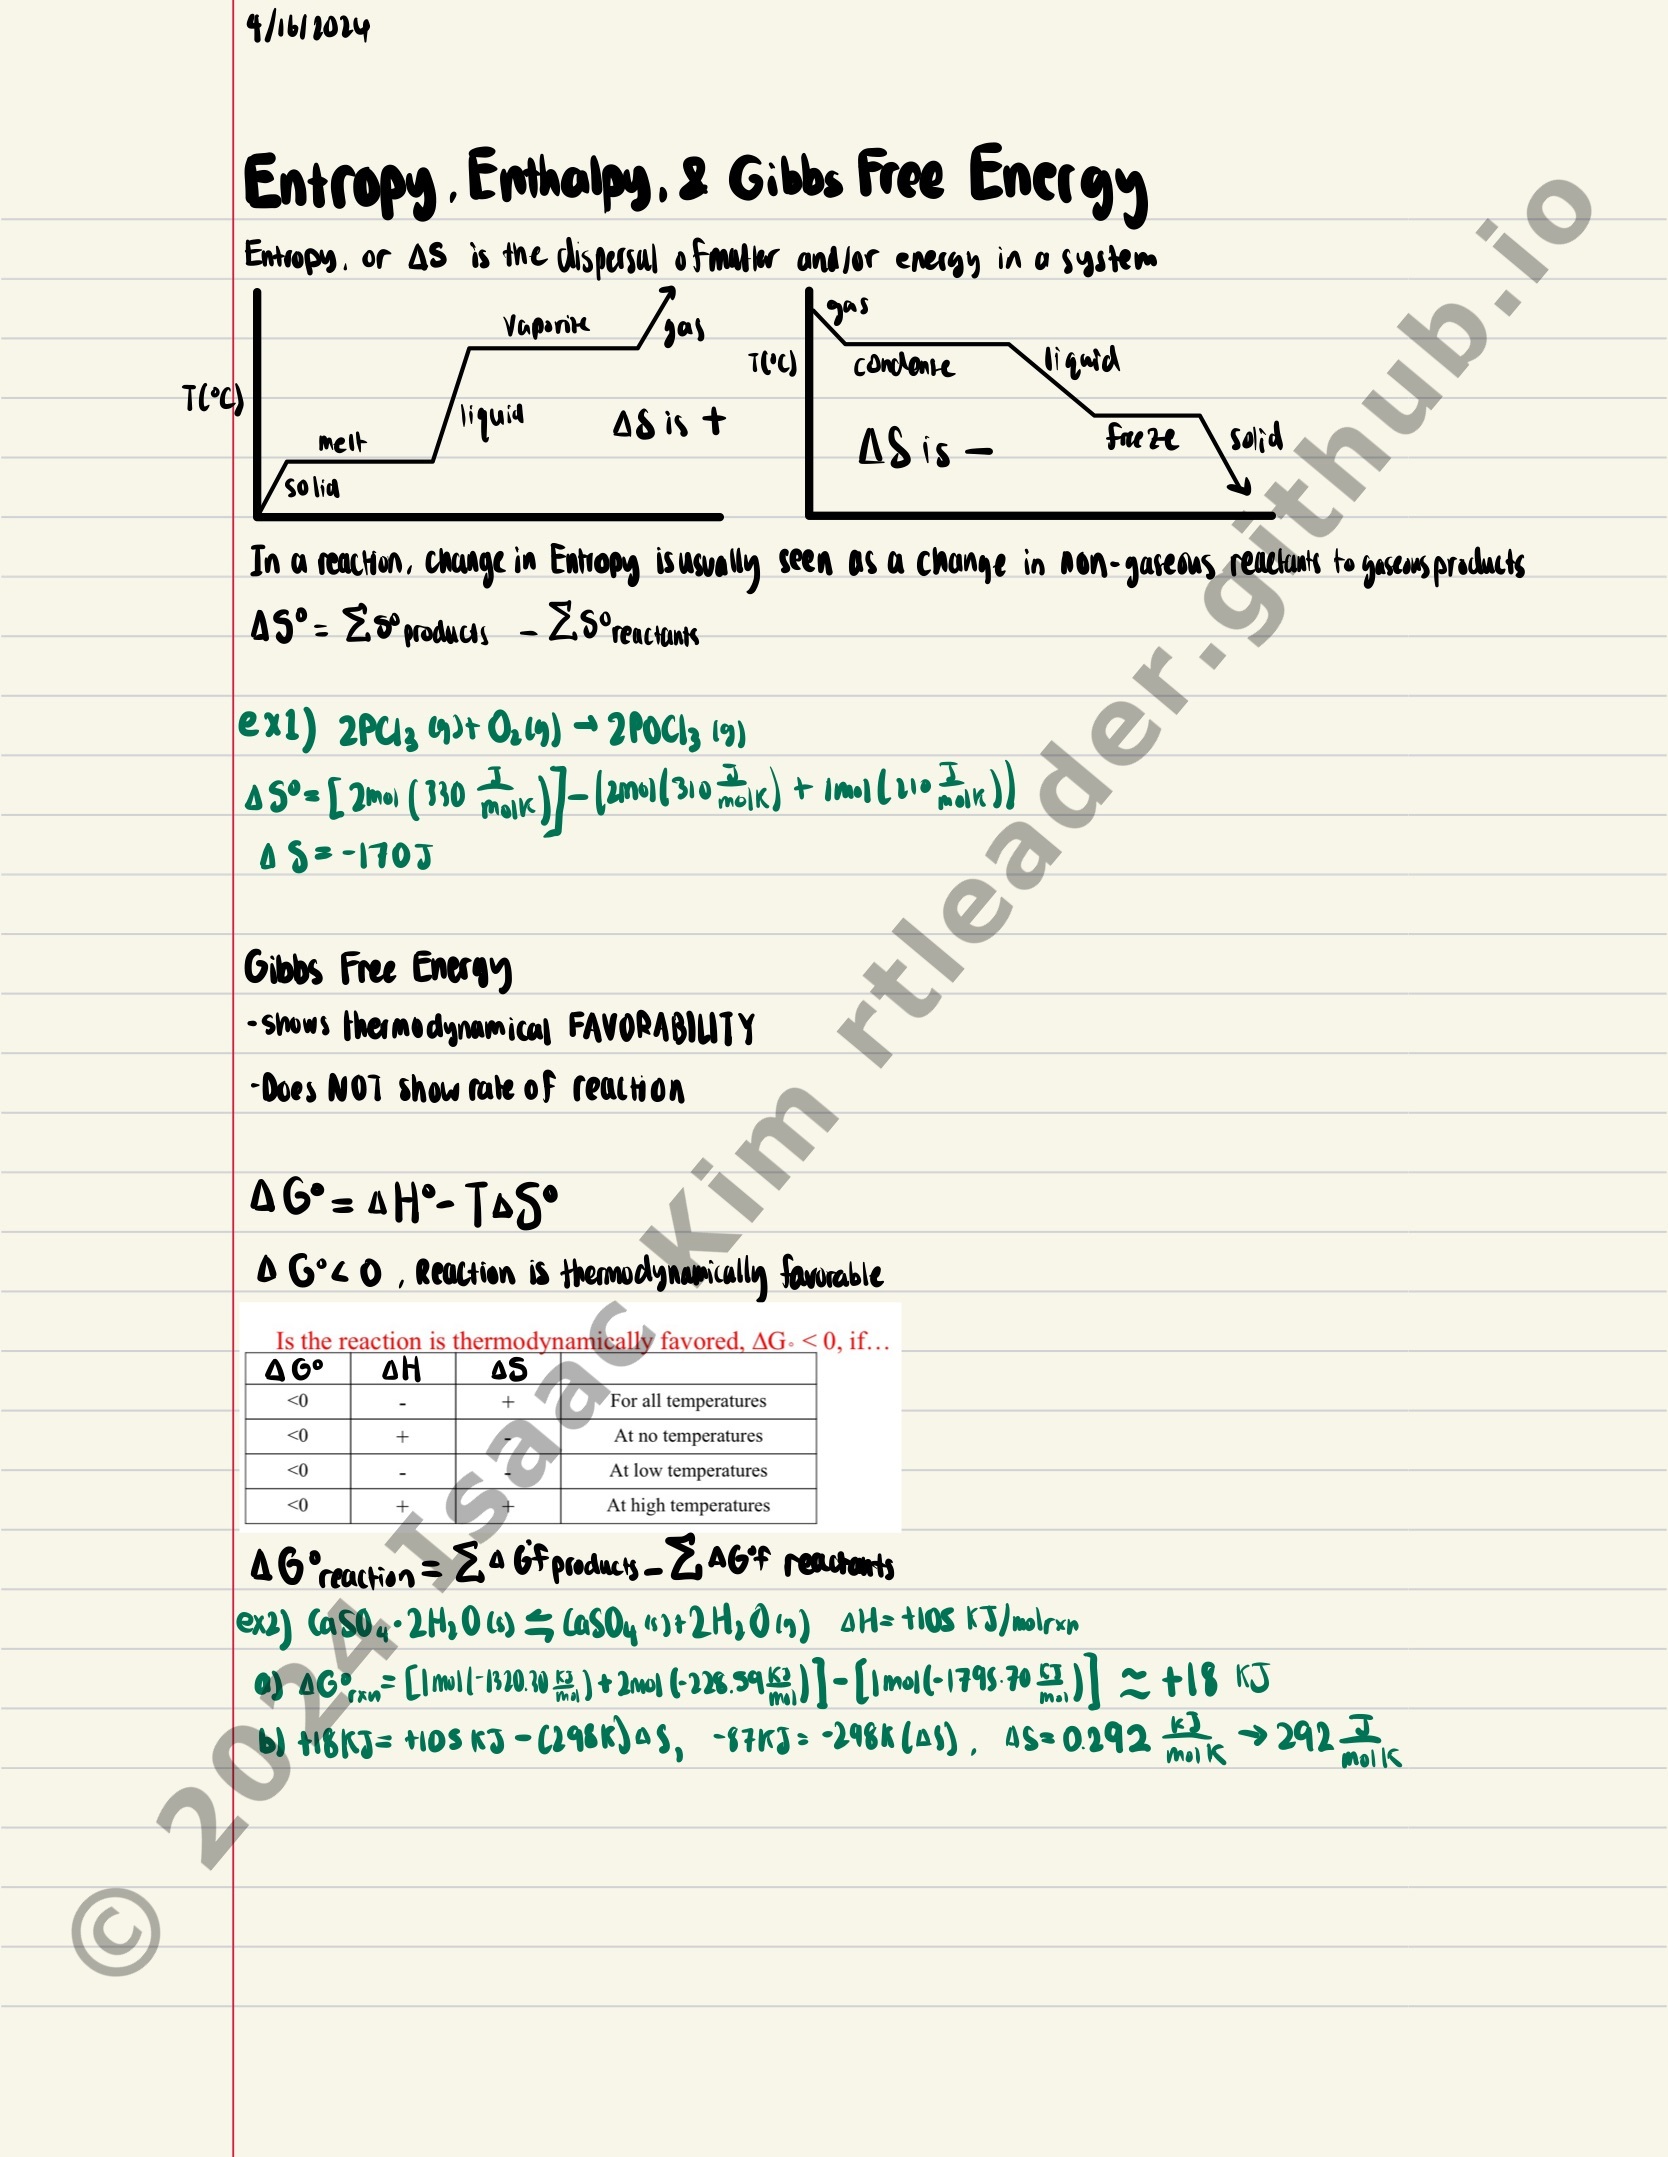 4/16/2024
Entropy, Enthalpy, & Gibbs Free Energy
Entropy, or ΔS is the dispersal of matter and/or energy in a system
T(°C)
solid
melt
liquid
Vaporize
gas
ΔS is +
T(°C)
gas
condense
liquid
freeze
solid
ΔS is −
In a reaction, change in Entropy is usually seen as a change in non-gaseous reactants to gaseous products
ΔS° = ΣS° products − ΣS° reactants
ex1) 2PCl₃ (g) + O₂ (g) → 2POCl₃ (g)
ΔS° = [2mol (330 J/molK)] − (2mol(310 J/molK) + 1mol(210 J/molK))
ΔS = -170J
Gibbs Free Energy
-shows thermodynamical FAVORABILITY
-Does NOT show rate of reaction
ΔG° = ΔH° − TΔS°
ΔG° < 0, Reaction is thermodynamically favorable
Is the reaction is thermodynamically favored, ΔG◦ < 0, if…
ΔG° ΔH ΔS
<0 - + For all temperatures
<0 + - At no temperatures
<0 - - At low temperatures
<0 + + At high temperatures
ΔG° reaction = ΣΔG°f products − ΣΔG°f reactants
ex2) CaSO₄·2H₂O (s) ⇆ CaSO₄ (s) + 2H₂O (g) ΔH = +105 KJ/molrxn
a) ΔG°rxn = [1mol(-1320.30 KJ/mol) + 2mol(-228.59 KJ/mol)] − [1mol(-1795.70 KJ/mol)] ≈ +18 KJ
b) +18KJ = +105 KJ − (298K)ΔS, -87KJ = -298K(ΔS), ΔS = 0.292 KJ/molK → 292 J/molK
© 2024 Isaac Kim rtleader.github.io